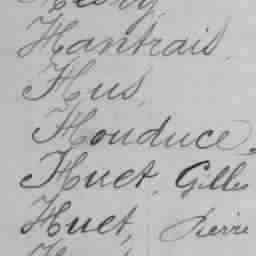 Hantrais.
Hus,
Houduce,
Huet, Gilles
Huet, Pierre